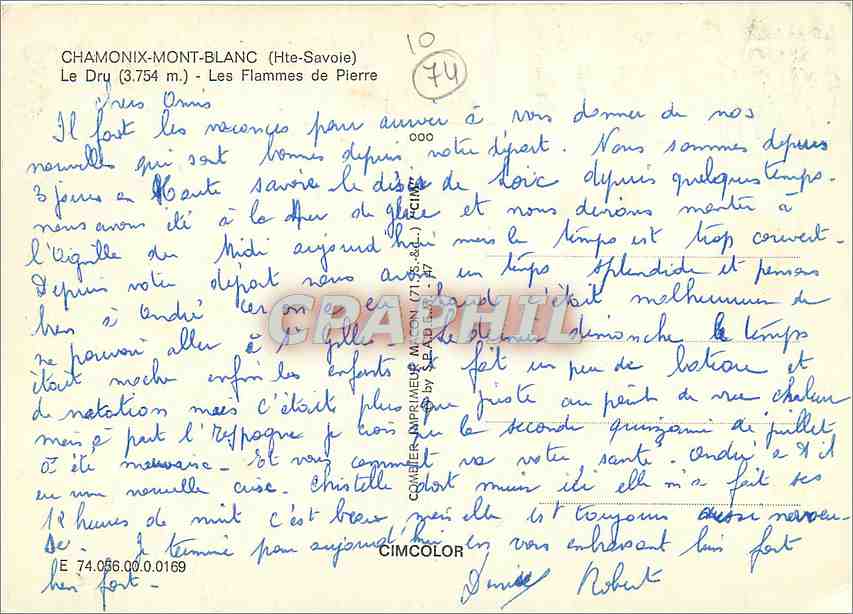 CHAMONIX-MONT-BLANC (Hte-Savoie)
Le Dru (3.754 m.) - Les Flammes de Pierre
10
74
Amis
Il faut les vacances pour arriver à vous donner de nos
nouvelles qui sont bonnes depuis votre départ. Nous sommes depuis
3 jours en Haute Savoie le désir de Loïc depuis quelques temps.
nous avons été à la Mer de glace et nous devions monter à
l'Aiguille du Midi aujourd'hui mais le temps est trop couvert.
Depuis votre départ nous avons un temps splendide et pensons
bien à André car on a eu chaud c'était malheureux de
ne pouvoir aller à St Gilles. Le dernier dimanche le temps
était moche enfin les enfants ont fait un peu de bateau et
de natation mais c'était plus que juste au point de vue chaleur
mais à part l'Espagne je crois que la seconde quinzaine de juillet
a été mauvaise. Et vous comment va votre santé. André a t'il
eu une nouvelle crise. Christelle dort mieux ici elle m'a fait ses
12 heures de nuit c'est beau mais elle est toujours aussi nerveu-
se. Je termine pour aujourd'hui en vous embrassant bien fort
bien fort.
Robert
COMBIER IMPRIMEUR MACON (71-S.-&-L.) "CIM"
© by S.P.A.D.E.M. - 47
CRAPHIL
CIMCOLOR
E 74.056.00.0.0169